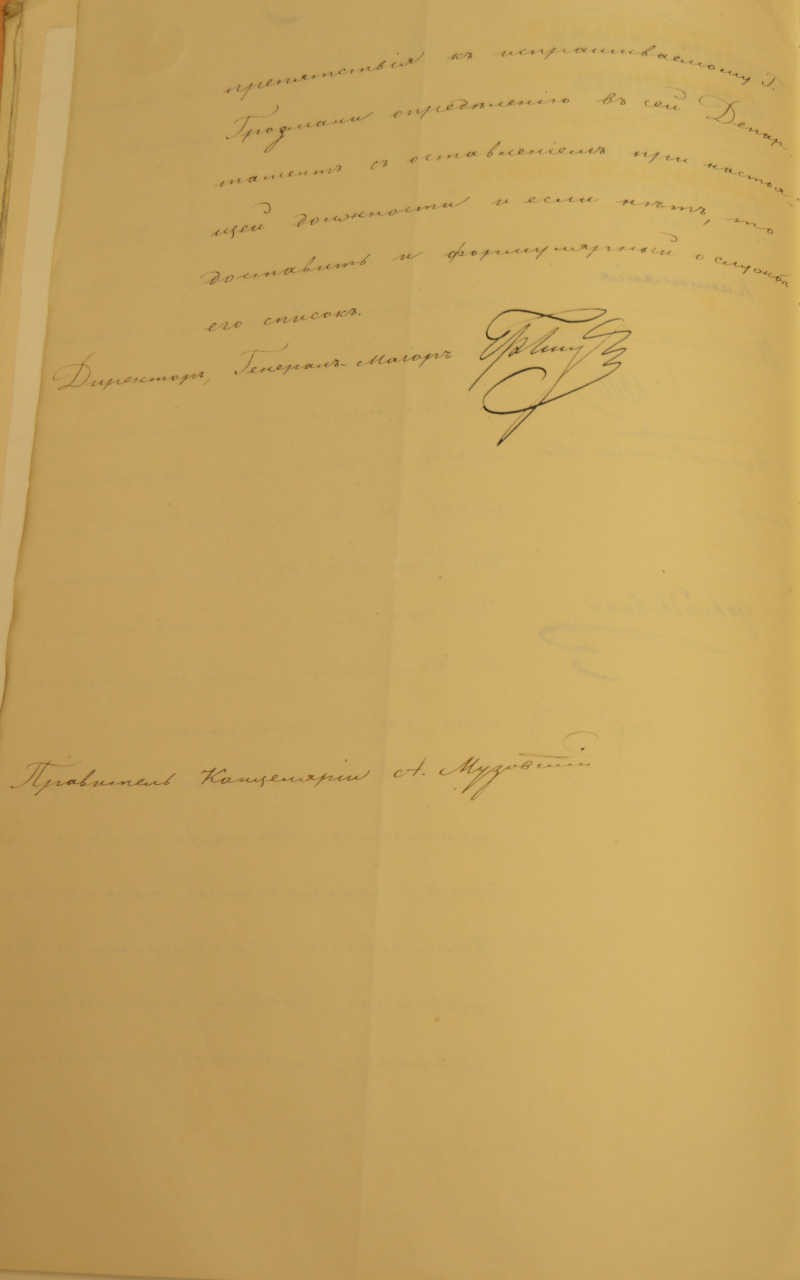 препятствія къ испрашиваемому Г.
опредѣленію въ сей Депар-
таментъ съ оставленіемъ при настоя-
щей должности и если нѣтъ, то
доставить и формулярный о службѣ
его списокъ.
Директоръ, Генералъ-Маіоръ
Правитель Канцеляріи А.